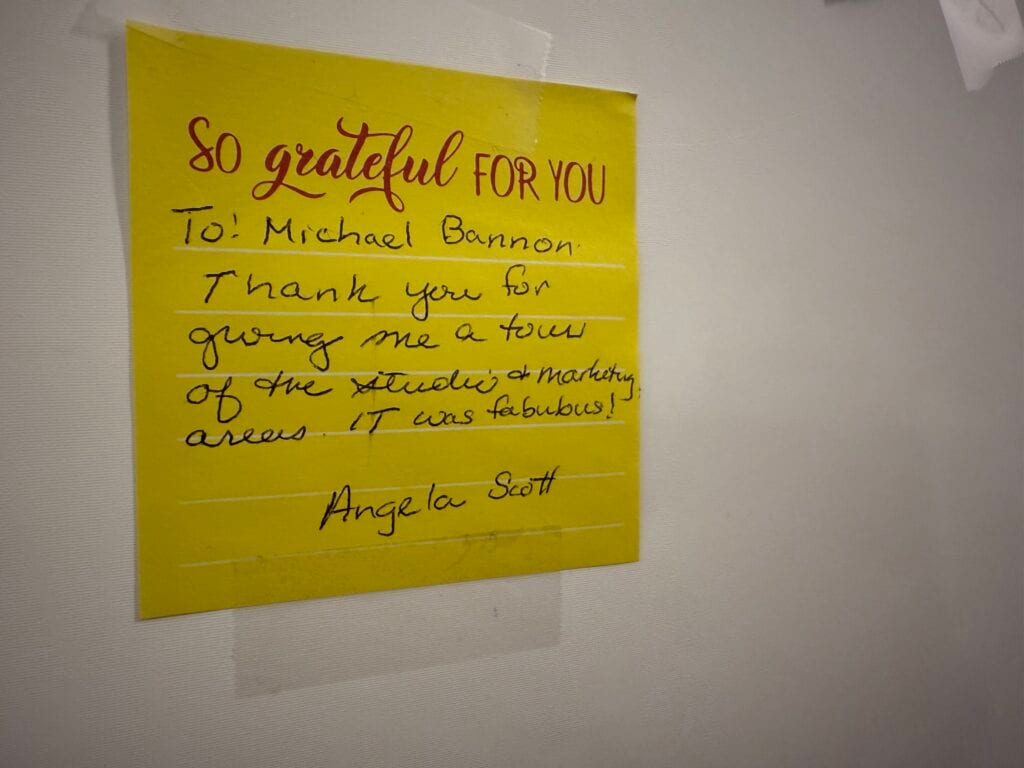 So grateful FOR YOU
To: Michael Bannon
Thank you for
giving me a tour
of the studio & marketing
areas. IT was fabubus!
Angela Scott